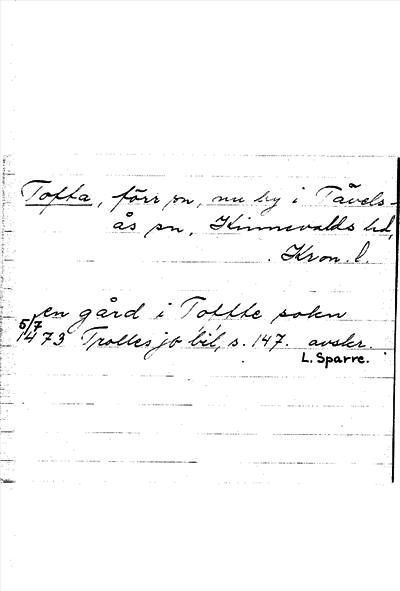 Tofta, förr sn, nu by i Tävels-
ås sn, Kinnevalds hd,
Kron. l.
en gård i Toffte sokn
5/7
1473 Trollesjö bil, s. 147. avskr.
L. Sparre.